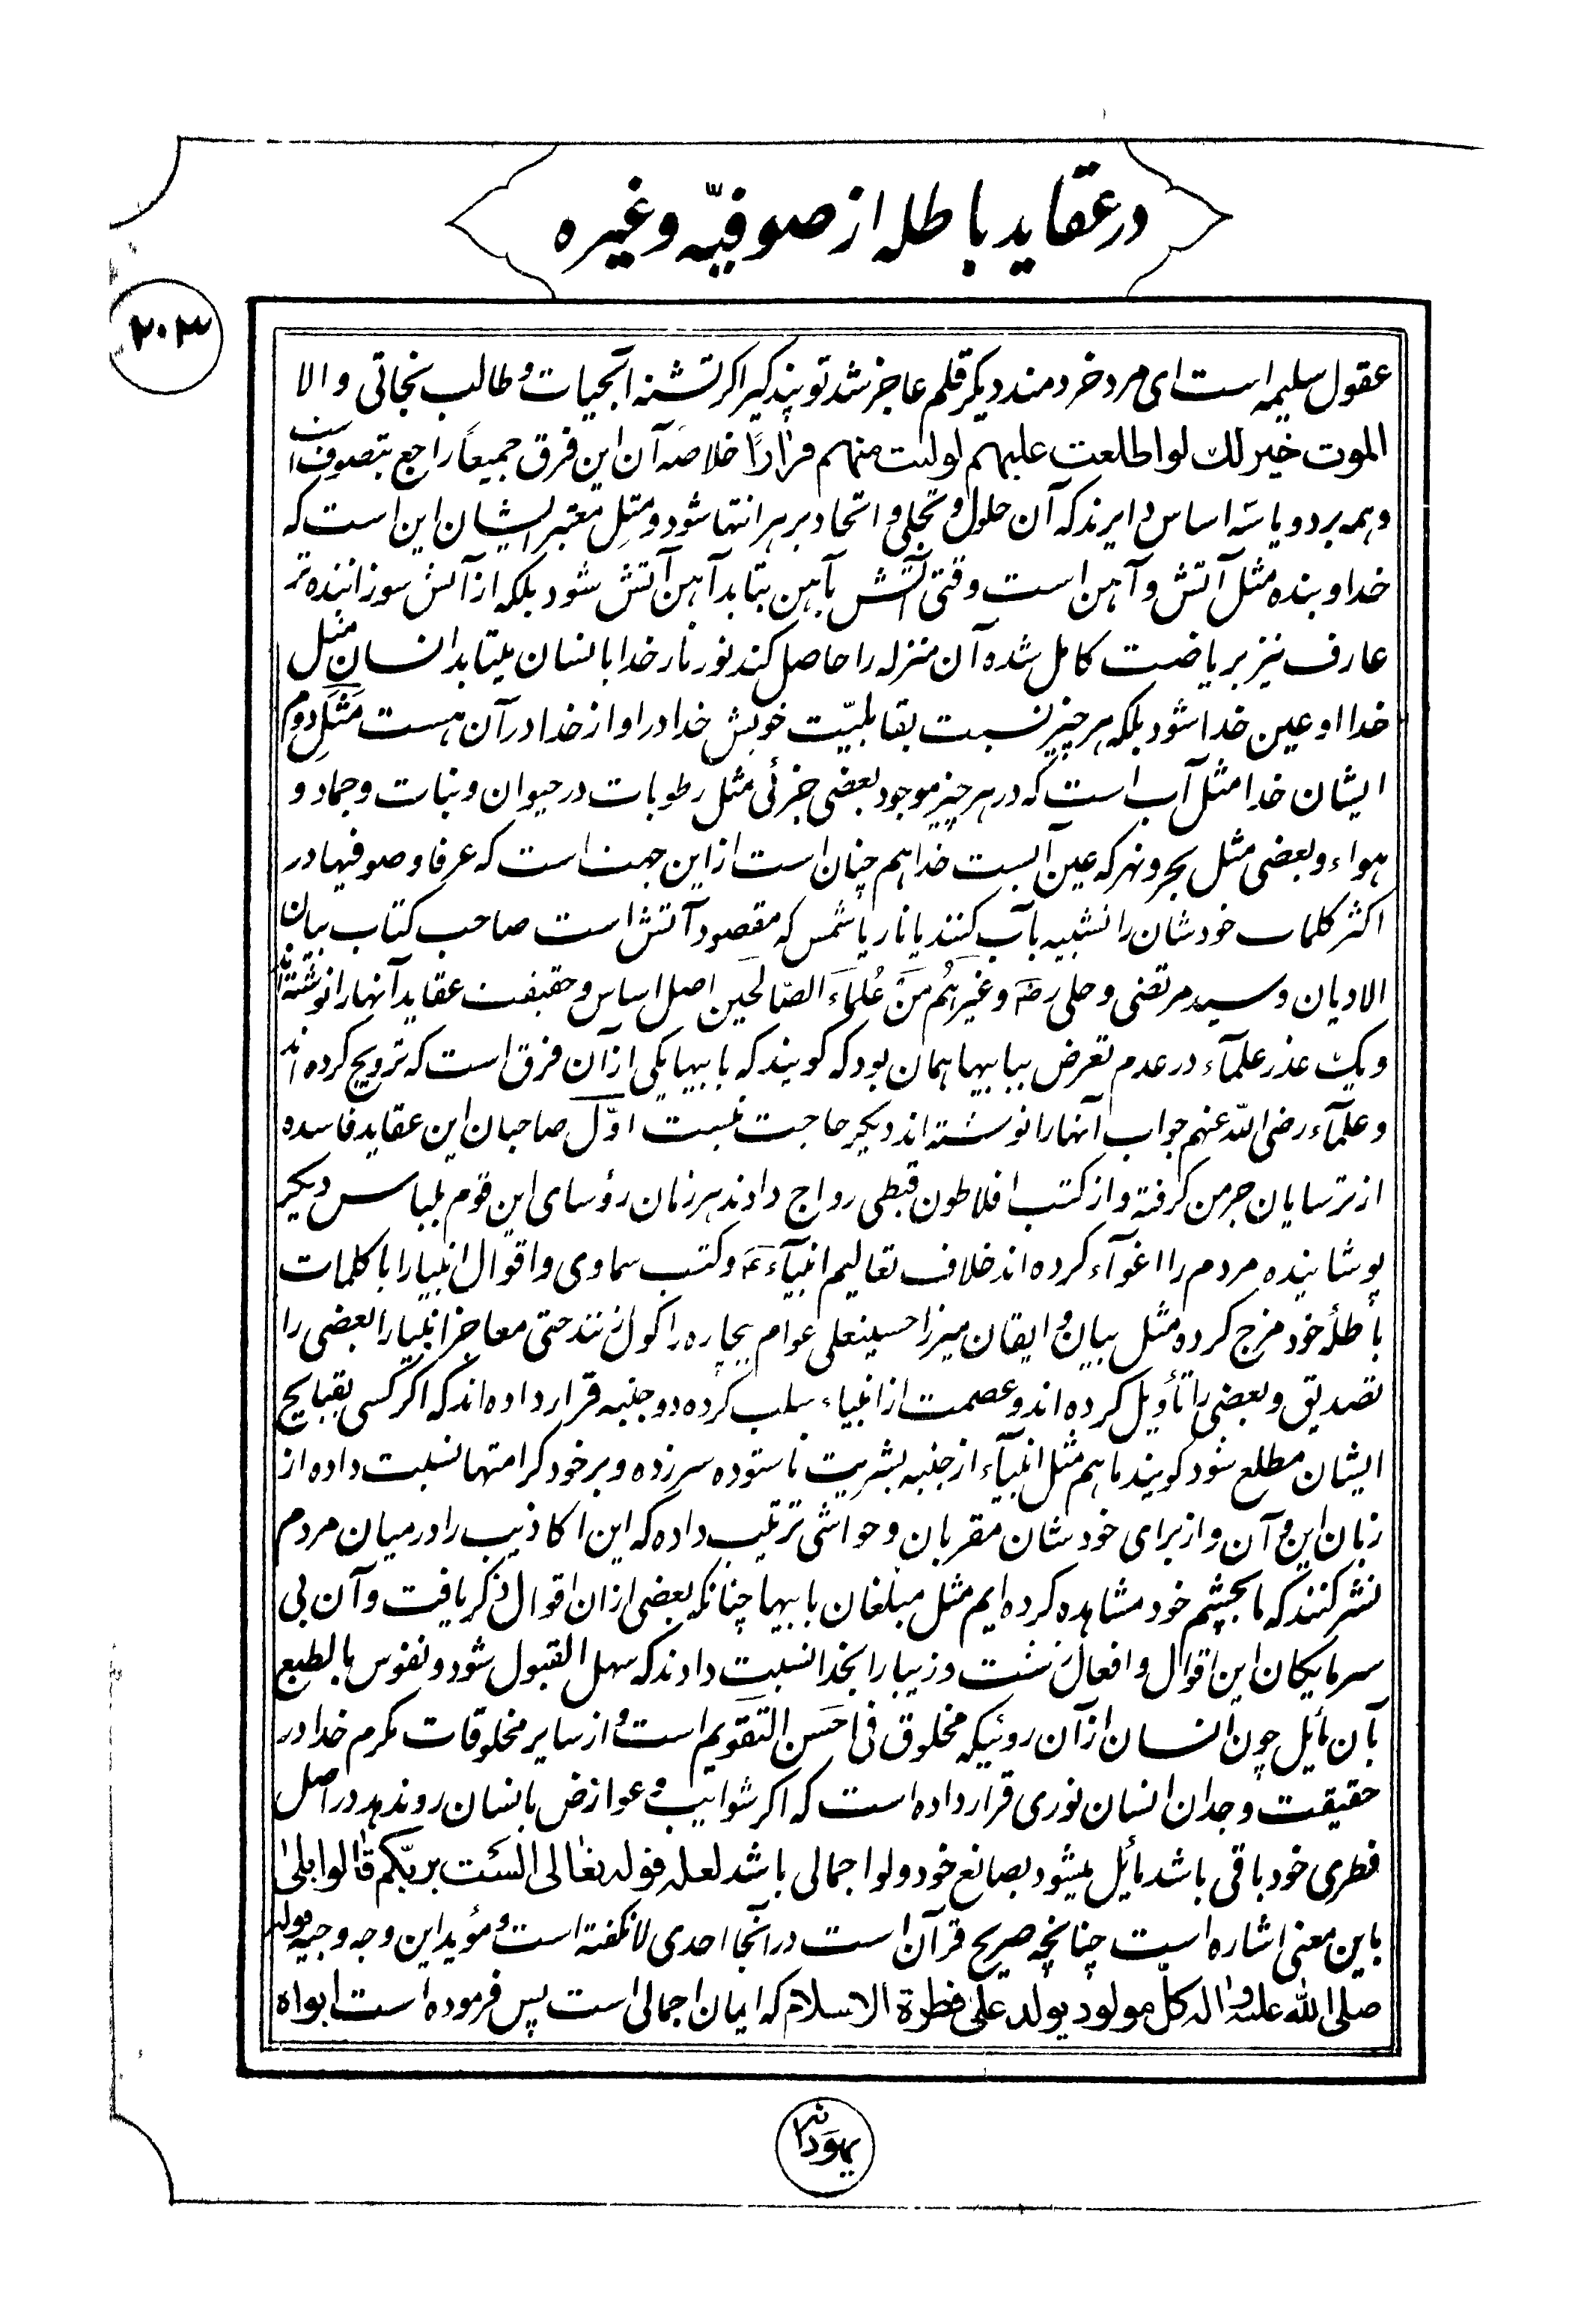 در عقاید باطله از صوفیّه و غیره
۲۰۳
عقول سلیمه است ای مرد خردمند دیکر قلم عاجز شد تو پند کیر اکر تشنه آبحیات و طالب نجاتی و الا
الموت خیر لك لو اطلعت علیهم لولیت منهم فرارًا خلاصه آن این فرق جمیعاً راجع بتصوف است
و همه بر دو پا سه اساس دایرند که آن حلول و تجلی و اتحاد بر هر انتها شود و مثل معتبر ایشان این است که
خدا و بنده مثل آتش و آهن است وقتی آتش بآهن بتابد آهن آتش شود بلکه از آتش سوزاننده تر
عارف نیز بریاضت کامل شده آن منزله را حاصل کند نور نار خدا بانسان بتابد انسان مثل
خدا او عین خدا شود بلکه هر چیز نسبت بقابلیّت خویش خدا در او از خدا در آن هست مَثَلِ دوم
ایشان خدا مثل آب است که در هر چیز موجود بعضی جزئی مثل رطوبات در حیوان و نبات و جماد و
هواء و بعضی مثل بحر و نهر که عین آبست خدا هم چنان است از این جهت است که عرفا و صوفیها در
اکثر کلمات خودشان را تشبیه بآب کنند یا نار یا شمس که مقصود آتش است صاحب کتاب بیان
الادیان و سید مرتضی و حلی رضه و غیرهُم مَن عُلماءَ الصّالحین اصل اساس و حقیقت عقاید آنها را نوشته‌اند
و یک عذر علمآء در عدم تعرض ببابیها همان بود که کویند که بابیها یکی از آن فرق است که ترویج کرده اند
و علمآء رضی الله عنهم جواب آنها را نوشته اند دیکر حاجت نیست اوّل صاحبان این عقاید فاسده
از ترسایان جرمن کرفته و از کتب افلاطون قبطی رواج دادند هر زمان رؤسای این قوم بلباس دیکر
پوشانیده مردم را اغوآء کرده اند خلاف تعالیم انبیآء ع و کتب سماوی و اقوال انبیا را با کلمات
باطلهٔ خود مزج کرده مثل بیان و ایقان میرزا حسینعلی عوام بیچاره را کول زنند حتی معاجز انبیا را بعضی را
تصدیق و بعضی را تأویل کرده اند و عصمت از انبیاء سلب کرده دو جنبه قرار داده اند که اکر کسی بقبایح
ایشان مطلع شود کویند ما هم مثل انبیآء از جنبه بشریت ناستوده سر زده و بر خود کرامتها نسبت داده از
زبان این و آن و از برای خودشان مقربان و حواشی ترتیب داده که این اکاذیب را در میان مردم
نشر کنند که ما بچشم خود مشاهده کرده ایم مثل مبلغان بابیها چنانکه بعضی از ان اقوال ذکر یافت و آن بی
سرمایکان این اقوال و افعال زشت و زیبا را بخدا نسبت دادند که سهل القبول شود و نفوس بالطبع
بآن مایل چون انسان از آن روئیکه مخلوق فی احسن التقویم است و از سایر مخلوقات مکرم خدا در
حقیقت وجدان انسان نوری قرار داده است که اکر شوایب و عوارض بانسان رو ندهد در اصل
فطری خود باقی باشد مایل میشود بصانع خود ولو اجمالی باشد لعله قوله تعالی الست بربّکم قالوا بلی
باین معنی اشاره است چنانچه صریح قرآن است در آنجا احدی لا نکفته است و مؤید این وجه وجیه قوله
صلی الله علیه و اله کلّ مولود یولد علی فطرة الاسلام که ایمان اجمالی است پس فرموده است ابواه
یهودانه